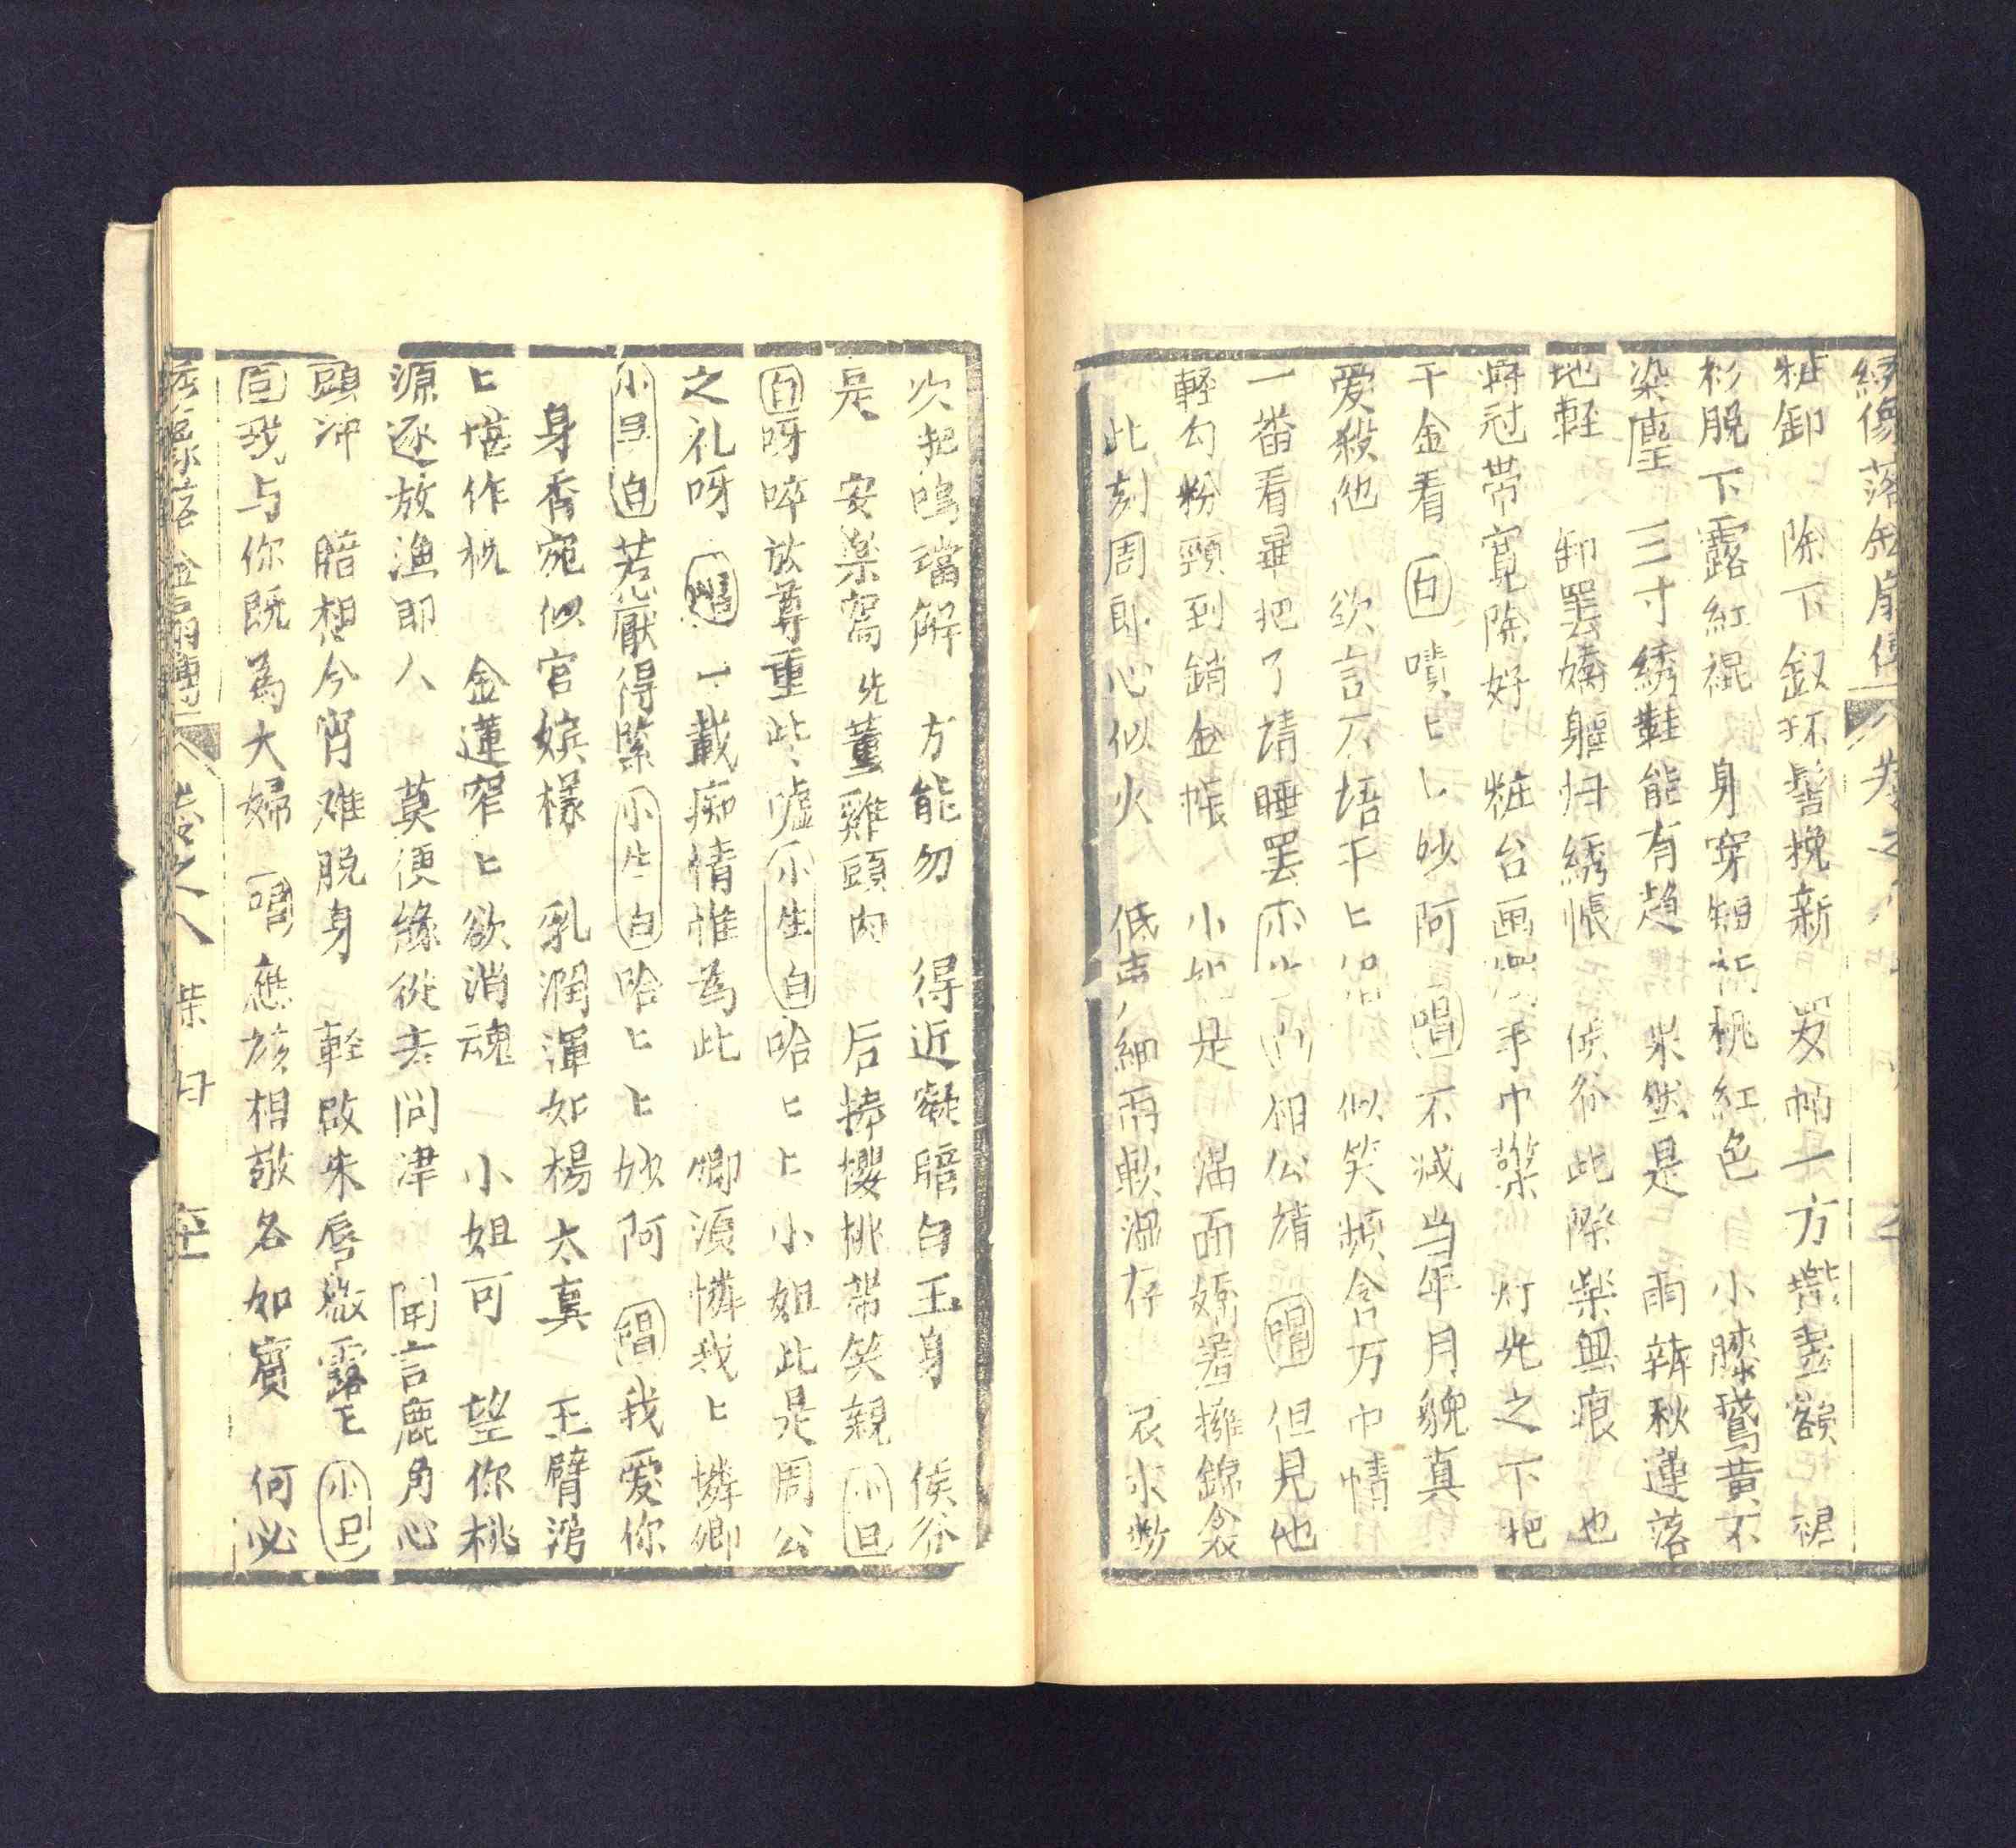 綉像落金扇傳 卷之八
粧卸 除下釵环髻挽新 罗帕一方㩙盖額 裙
衫脱下露紅裩 身穿短 桃紅色 小膝鵞黄不
染塵 三寸綉鞋能有趣 果然是 兩辨秋蓮落
地輕 卸罢嬌軀归綉帳 侯爷此際樂無痕 也
冠帶寬除好 粧台画 手巾 灯光之下把
千金看 白 嘖匕匕妙阿 唱 不减当年月貌真
爱殺他 欲言不 千匕 似笑頻含万巾情
一畨看畢把了靖睡罢 小生 白 相公請 唱 但見他
輕勾粉頸到銷金帳 小姐是 滿面嬌羞擁錦衾
此刻周郎心似火 低声細雨軟溫存 衣 数
次把鳴璫解 方能勿 得近凝脂白玉身 侯爷
是 安樂窩先董雞頭肉 后捧櫻桃带笑親 小旦
白 呀啐放尊重些噓 小生 白 哈匕匕小姐此是周公
之礼呀 唱 一載痴情惟為此 卿須憐我匕憐卿
小旦 白 惹厭得緊 小生 白 哈匕匕妙阿 唱 我爱你
身香宛似官嬪樣 乳潤渾如楊太真 玉臂滑
匕堪作枕 金蓮窄匕欲消魂 小姐可 望你桃
源逐放渔郎人 莫便緣從去问津 聞言鹿角心
頭冲 暗想今宵难脱身 輕啟朱唇微露匕 小旦
白 我与你既為大婦 唱 應该相敬各如賓 何必
綉像落金扇傳 卷之八 柴日